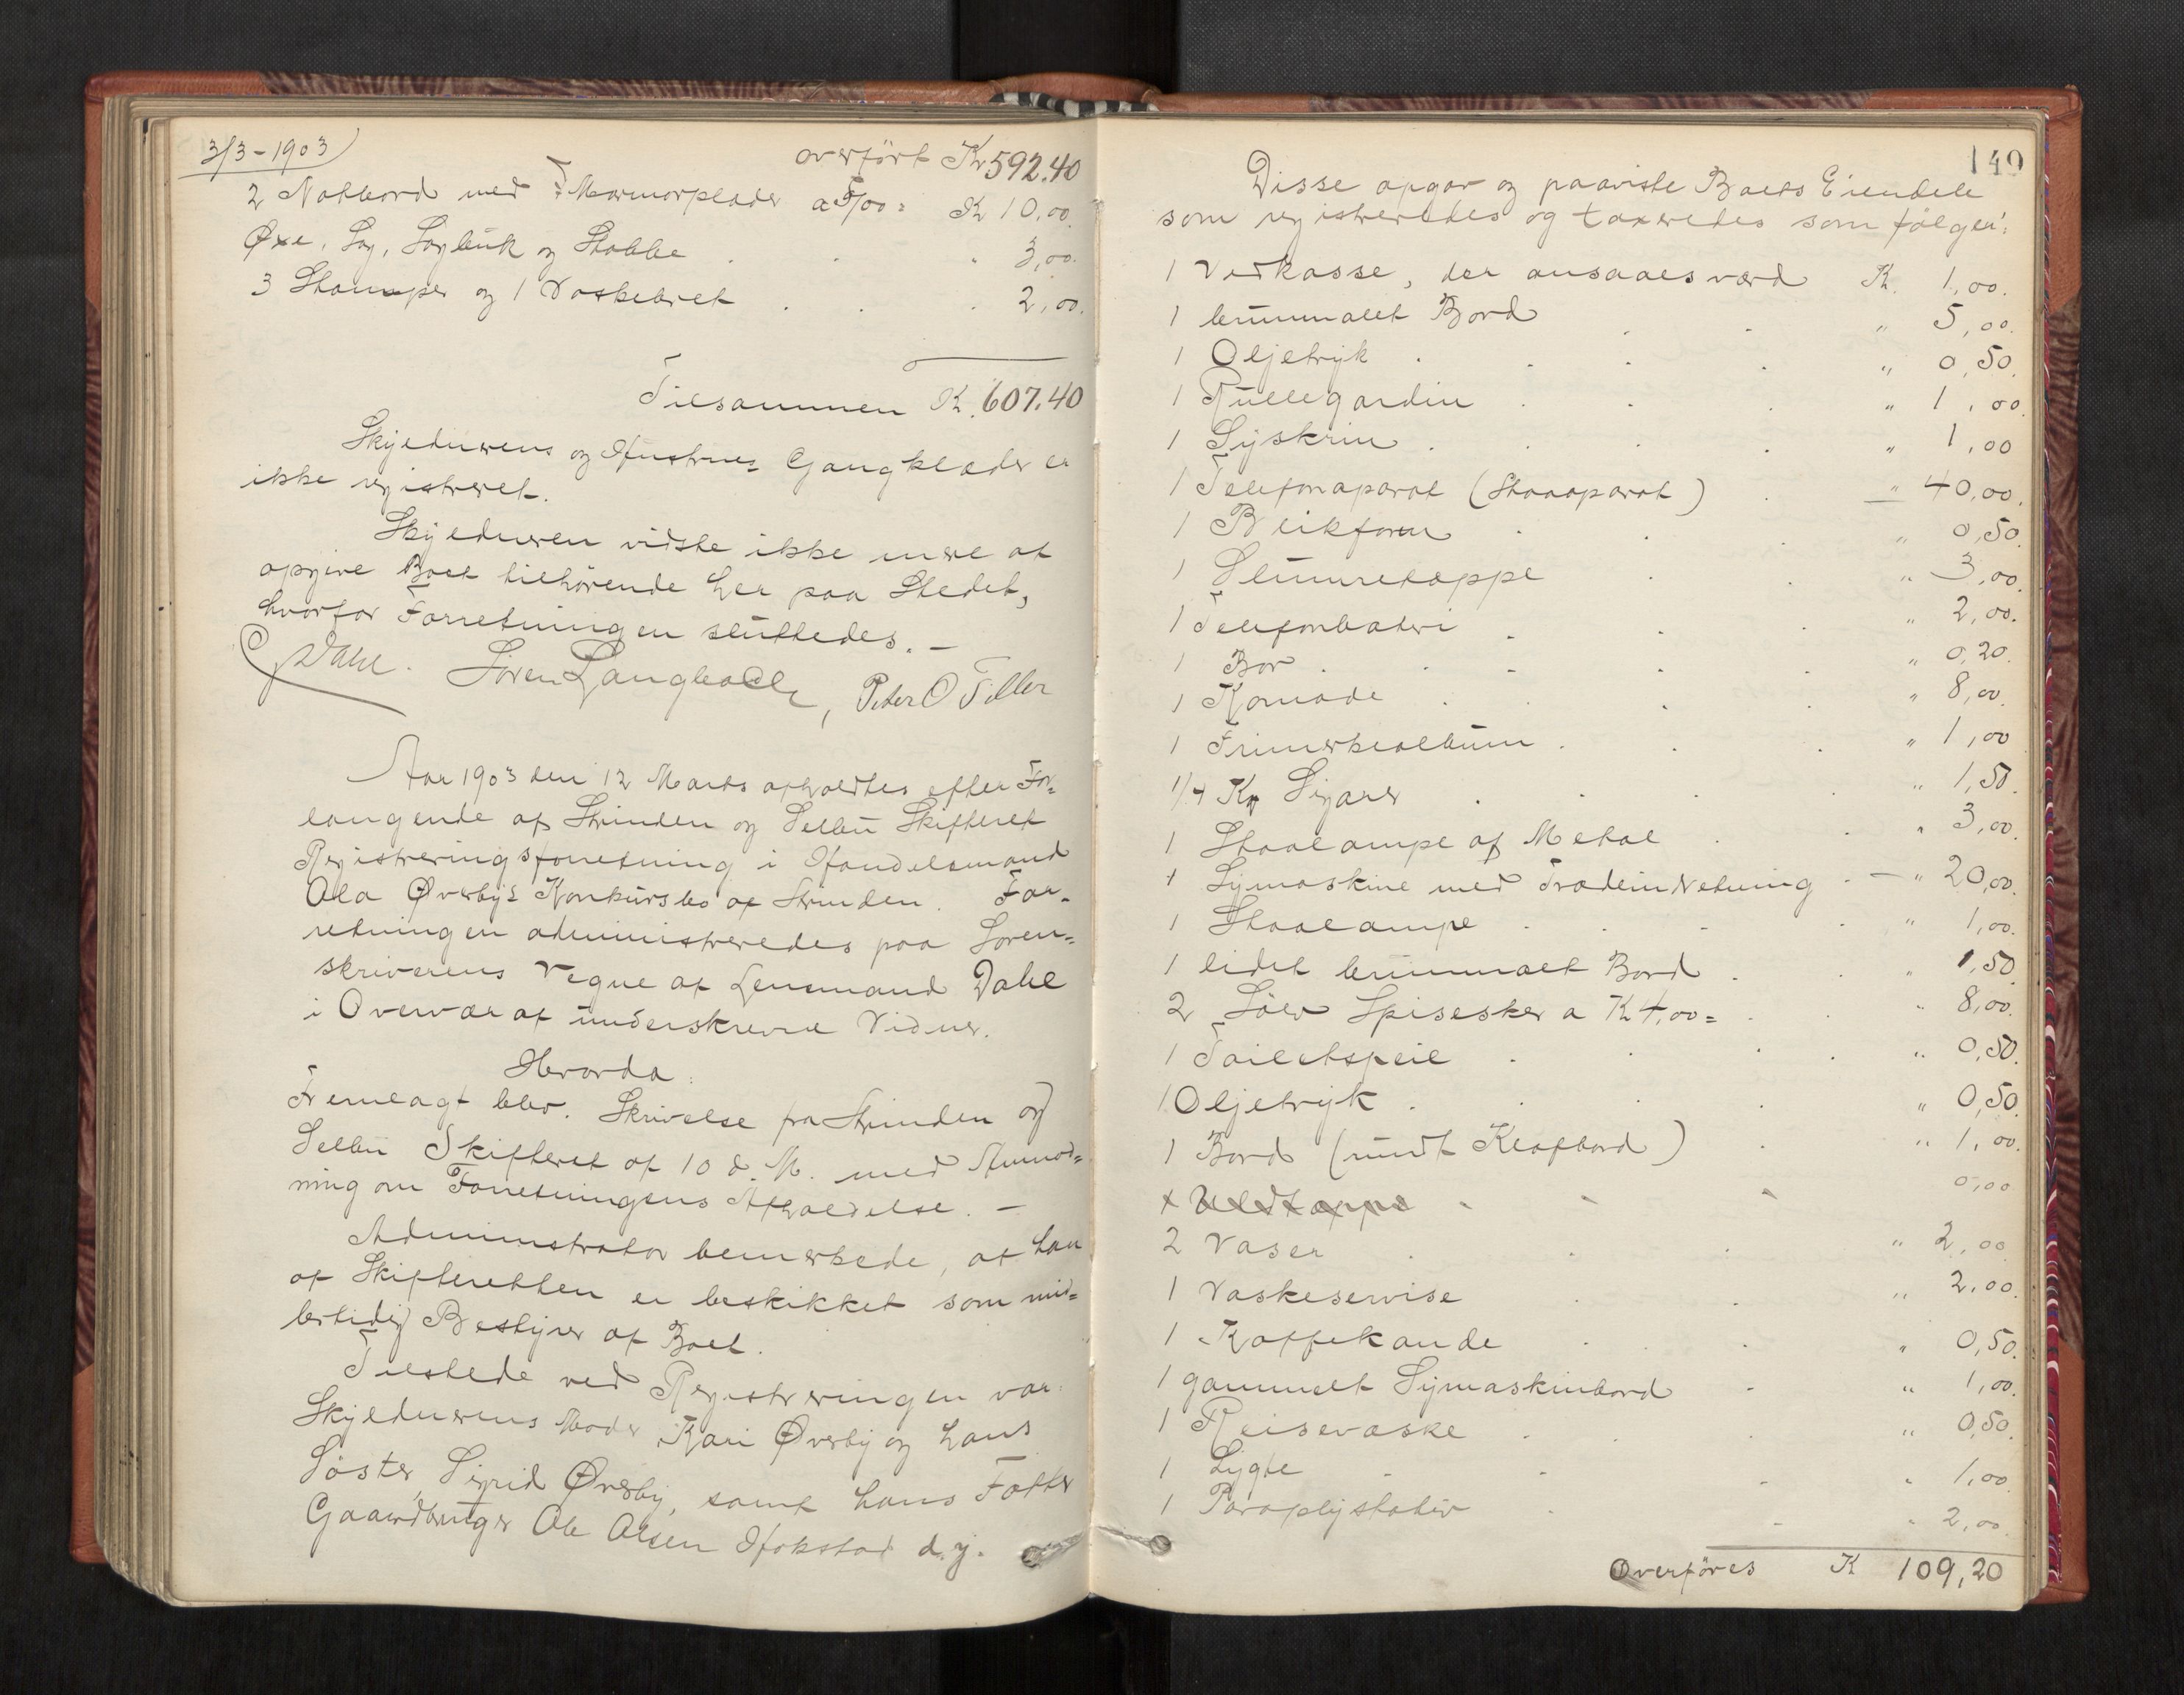 3/3-1903
overført Kr 592.40
2 Natbord med Marmorplader a 5/00 = Kr 10,00.
Øxe, Sag, Sagbuk og Stabbe . . . 3,00.
3 Stamper og 1 Vaskebret . . . 2,00.
Tilsammen K. 607.40
Skyldnerens og Hustrues Gangklæder er
ikke registreret.
Skyldneren vidste ikke mere at
opgive Boet tilhørende her paa Stedet,
hvorfor Forretningen sluttedes. —
Dahl. Søren Langli, Peter O Tiller
Aar 1903 den 12 Marts afholdtes efter For=
langende af Strinden og Selbu Skifteret
Registreringsforretning i Handelsmand
Ola Øverby's Konkursbo af Strinden. For-
retningen administreredes paa Soren=
skriverens Vegne af Lensmand Dahl
i Overvær af underskrevne Vidner.
Hvorda:
Fremlagt blev. Skrivelse fra Strinden og
Selbu Skifteret af 10 d. M. med Anmod=
ning om Forretningens Afholdelse. —
Administrator bemerkede, at han
af Skifteretten er beskikket som mid=
lertidig Bestyrer af Boet.
Tilstede ved Registreringen var
Skyldnerens Moder Kari Øverby og hans
Søster, Sigrid Øverby, samt hans Fætter
Gaardbruger Ole Olsen Hokstad d.y.
149
Disse opgav og paaviste Boets Eiendele
som registreredes og taxeredes som følger:
1 Vedkasse, der ansaaes værd K. 1,00.
1 brunmalt Bord . . " 5,00.
1 Oljetryk . . . " 0,50.
1 Rullegardin . . . " 1,00.
1 Syskrin . . . " 1,00
1 Telefonaparat (Staaaparat) . " 40,00.
1 Blikform . . . " 0,50.
1 Slumretæppe . . " 3,00.
1 Telefonbatteri . . . " 2,00.
1 Bor . . . . " 0,20.
1 Komode . . . . " 8,00.
1 Frimerkealbum . . . " 1,00
1/4 Ks Sigarer . . . . " 1,50.
1 Staalampe af Metal . . " 3,00.
1 Symaskine med Trædeindretning . " 20,00.
1 Staalampe . . . . " 1,00.
1 lidet brunmalt Bord . . " 1,50
2 Sølv Spiseskeer a K 4,00 = . . " 8,00.
1 Toiletspeil . . . . " 0,50.
1 Oljetryk . . . . " 0,50.
1 Bord (rundt Klafbord) . " 1,00.
1 Uldtæppe . . . 0,00
2 Vaser . . . " 2,00.
1 Vaskeservise . . " 2,00.
1 Kaffekande . . . " 0,50.
1 gammelt Symaskinbord . " 1,00.
1 Reisevæske . . . " 0,50.
1 Lygte . . . . " 1,00.
1 Paraplystativ . . . 2,00.
Overføres K 109,20